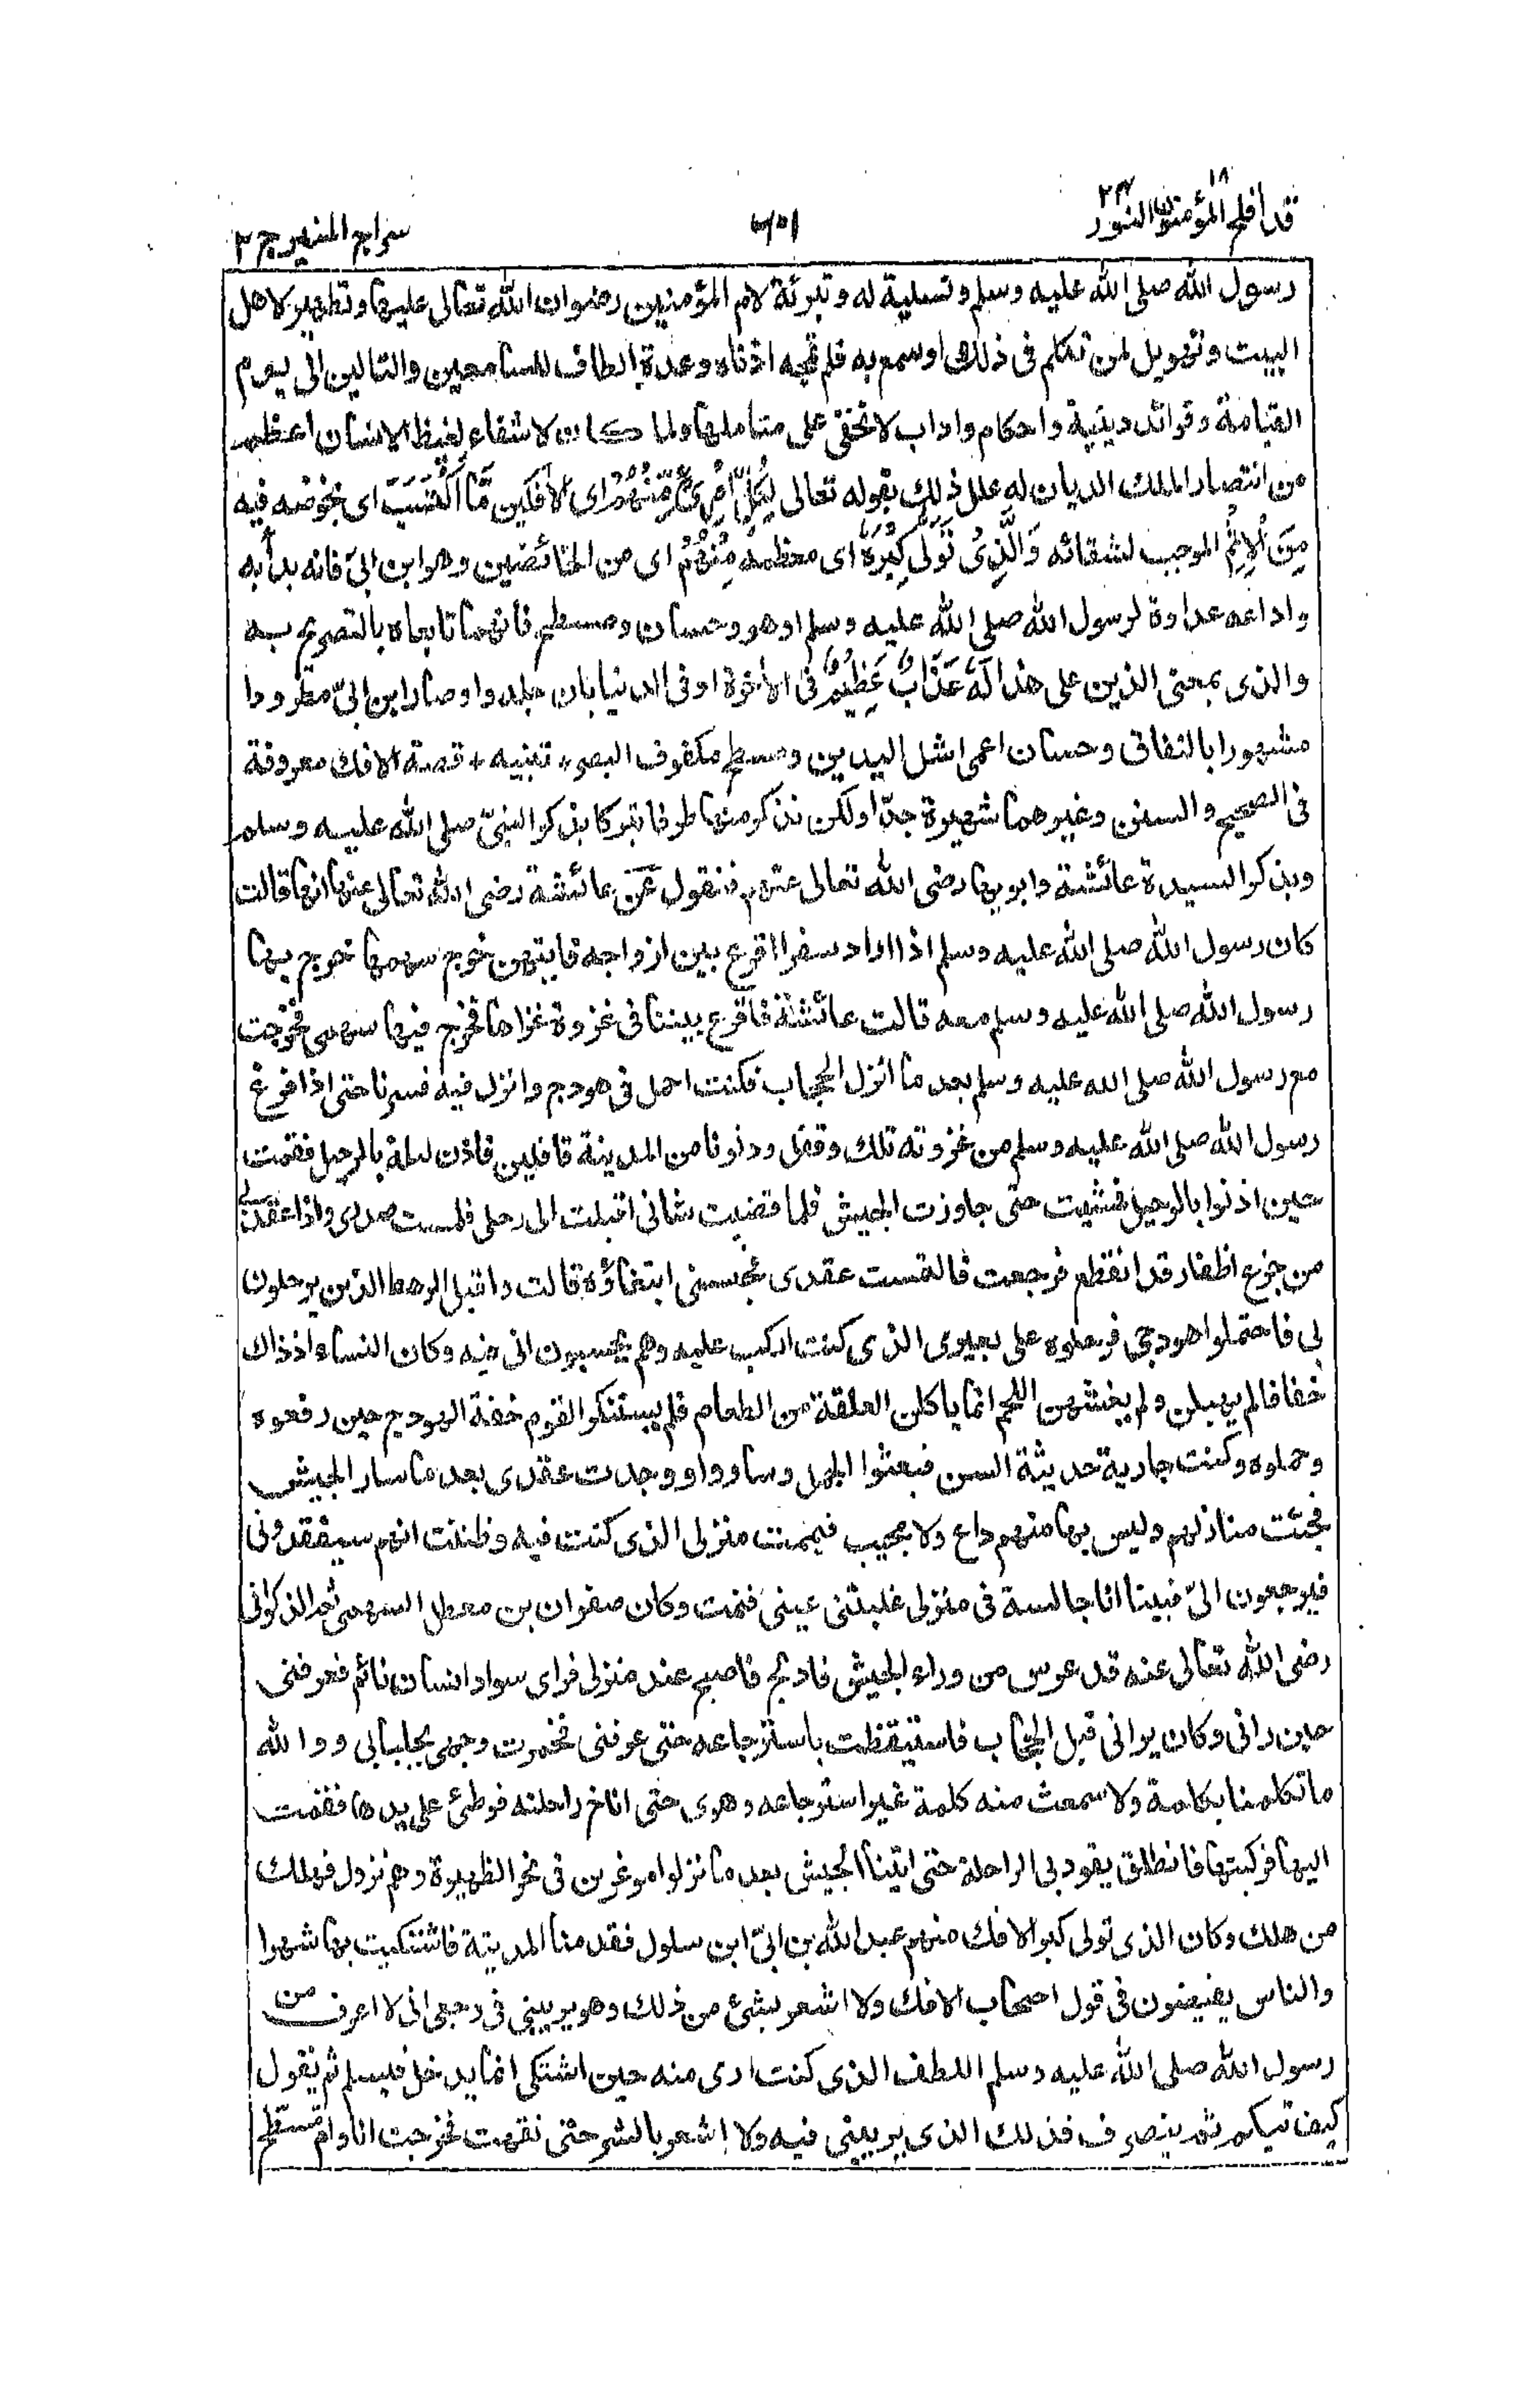 قد أفلح ١٨ المؤمنون النور ٢٤
سراج المنير ج ٢
رسول الله صلى الله عليه وسلم وتسلية له وتبرئة لام المؤمنين رضوان الله تعالى عليها وتطهير لاهل
البيت وتهويل لمن تكلم فى ذلك او سمع به فلم تمجه اذناه وعدة الطاف للسامعين والتالين الى يوم
القيامة وفوائد دينية واحكام واداب لا تخفى على متاملها ولما كان لا شفاء لغيظ الانسان اعظم
من انتصار الملك الديان له علل ذلك بقوله تعالى لِكُلِّ امْرِئٍ مِّنْهُمْ اى الافكين مَّا اكْتَسَبَ اى بخوضه فيه
مِنَ الْاِثْمِ الموجب لشقائه وَالَّذِىْ تَوَلّٰى كِبْرَهٗ اى معظمه مِنْهُمْ اى من الخائضين وهو ابن ابىّ فانه بدأ به
واذاعه عداوة لرسول الله صلى الله عليه وسلم او هو وحسان ومسطح فانهما تابعاه بالتصريح به
والذى بمعنى الذين على هذا لَهٗ عَذَابٌ عَظِيْمٌ فى الأخرة او فى الدنيا بان جلدوا وصار ابن ابىّ مطرودا
مشهورا بالنفاق وحسان اعمى اشل اليدين ومسطح مكفوف البصر + تنبيه + قصة الافك معروفة
فى الصحيح والسنن وغيرهما شهيرة جدّا ولكن نذكر منها طرفا تبركا بذكر النبىّ صلى الله عليه وسلم
وبذكر السيدة عائشة وابويها رضى الله تعالى عنهم فنقول عَنْ عائشة رضى الله تعالى عنها انها قالت
كان رسول الله صلى الله عليه وسلم اذا اراد سفرا اقرع بين ازواجه فايتهن خرج سهمها خرج بها
رسول الله صلى الله عليه وسلم معه قالت عائشة فاقرع بيننا فى غزوة غزاها فخرج فيها سهمى فخرجت
مع رسول الله صلى الله عليه وسلم بعد ما انزل الحجاب فكنت احمل فى هودج وانزل فيه فسرنا حتى اذا فرغ
رسول الله صلى الله عليه وسلم من غزوته تلك وقفل ودنونا من المدينة قافلين فاذن ليلة بالرحيل فقمت
حين اذنوا بالرحيل فمشيت حتى جاوزت الجيش فلما قضيت شانى اقبلت الى رحلى فلمست صدرى واذا عقد لى
من جزع اظفار قد انقطع فرجعت فالتمست عقدى فحبسنى ابتغاؤه قالت واقبل الرهط الذين يرحلون
لى فاحتملوا هودجى فرحلوه على بعيرى الذى كنت اركب عليه وهم يحسبون انى فيه وكان النساء اذ ذاك
خفافا لم يهبلن ولم يغشهن اللحم انما ياكلن العلقة من الطعام فلم يستنكر القوم خفة الهودج حين رفعوه
وحملوه وكنت جارية حديثة السن فبعثوا الجمل وساروا ووجدت عقدى بعد ما سار الجيش
فجئت منازلهم وليس بها منهم داع ولا مجيب فيممت منزلى الذى كنت فيه وظننت انهم سيفقدونى
فيرجعون الىّ فبينا انا جالسة فى منزلى غلبتنى عينى فنمت وكان صفوان بن معطل السهمى ثم الذكوانى
رضى الله تعالى عنه قد عرس من وراء الجيش فادلج فاصبح عند منزلى فراى سواد انسان نائم فعرفنى
حين رانى وكان يرانى قبل الحجاب فاستيقظت باسترجاعه حتى عرفنى فخمرت وجهى بجلبابى ووالله
ما تكلمنا بكلمة ولا سمعت منه كلمة غير استرجاعه وهوى حتى اناخ راحلته فوطئ على يدها فقمت
اليها فركبتها فانطلق يقود بى الراحلة حتى اتينا الجيش بعد ما نزلوا موغرين فى نحر الظهيرة وهم نزول فهلك
من هلك وكان الذى تولى كبر الافك منهم عبد الله بن ابىّ ابن سلول فقدمنا المدينة فاشتكيت بها شهرا
والناس يفيضون فى قول اصحاب الافك ولا اشعر بشئ من ذلك وهو يريبنى فى وجعى انى لا اعرف من
رسول الله صلى الله عليه وسلم اللطف الذى كنت ارى منه حين اشتكى انما يدخل فيسلم ثم يقول
كيف تيكم ثم ينصرف فذلك الذى يريبنى فيه ولا اشعر بالشر حتى نقهت فخرجت انا وام مسطح